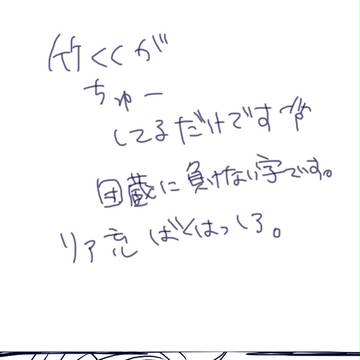 竹くくが
ちゅー
してるだけです
団蔵に負けない字です。
リア充ばくはつしろ。